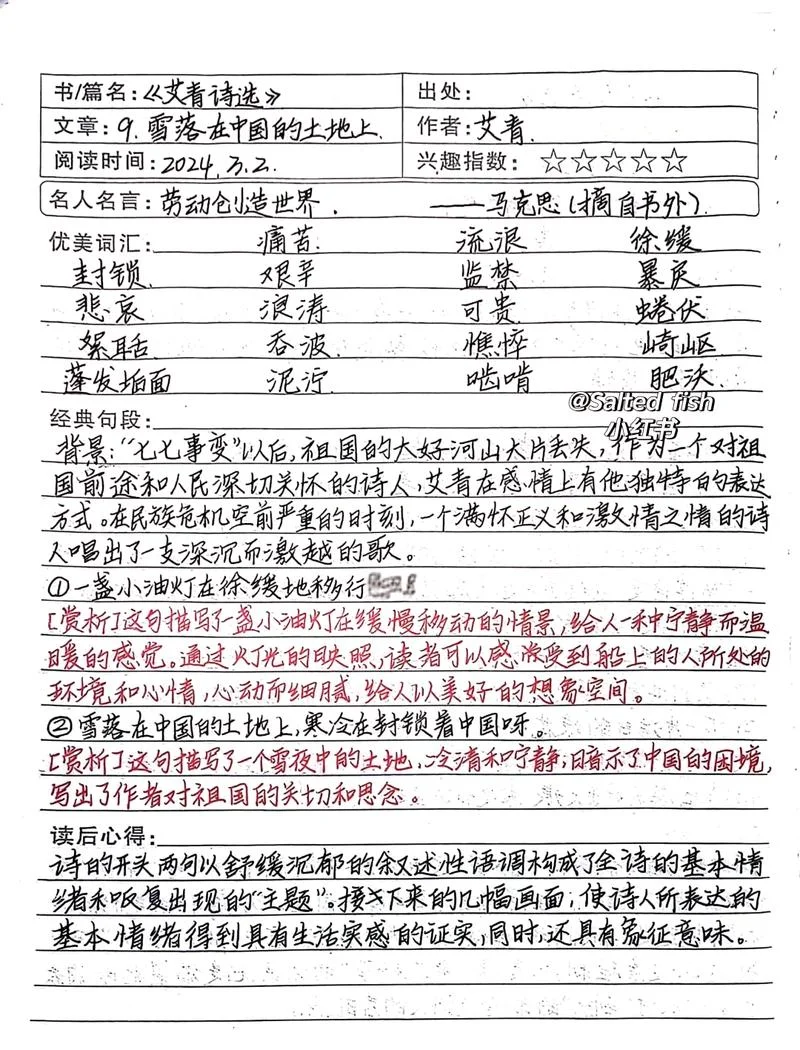 书/篇名:《艾青诗选》 出处:
文章:9.雪落在中国的土地上. 作者:艾青.
阅读时间:2024.3.2. 兴趣指数:☆☆☆☆☆
名人名言:劳动创造世界. ——马克思(摘自书外).
优美词汇: 痛苦. 流浪 徐缓
封锁. 艰辛 监禁 暴戾
悲哀 浪涛 可贵 蜷伏
絮聒 吞没. 憔悴 崎岖
蓬发垢面 泥泞 啮啃 肥沃.
@Salted fish
经典句段: 小红书
背景:“七七事变”以后,祖国的大好河山大片丢失,作为一个对祖
国前途和人民深切关怀的诗人,艾青在感情上有他独特的表达
方式。在民族危机空前严重的时刻,一个满怀正义和激情之情的诗
人唱出了一支深沉而激越的歌。
①一盏小油灯在徐缓地移行
[赏析]这句描写了一盏小油灯在缓慢移动的情景,给人一种宁静而温
暖的感觉。通过灯光的映照,读者可以感受到船上的人所处的
环境和心情,心动而细腻,给人以美好的想象空间。
②雪落在中国的土地上,寒冷在封锁着中国呀。
[赏析]这句描写了一个雪夜中的土地,冷清和宁静;暗示了中国的困境,
写出了作者对祖国的关切和思念。
读后心得:
诗的开头两句以舒缓沉郁的叙述性语调构成了全诗的基本情
绪和反复出现的“主题”。接下来的几幅画面,使诗人所表达的
基本情绪得到具有生活实感的证实,同时,还具有象征意味。